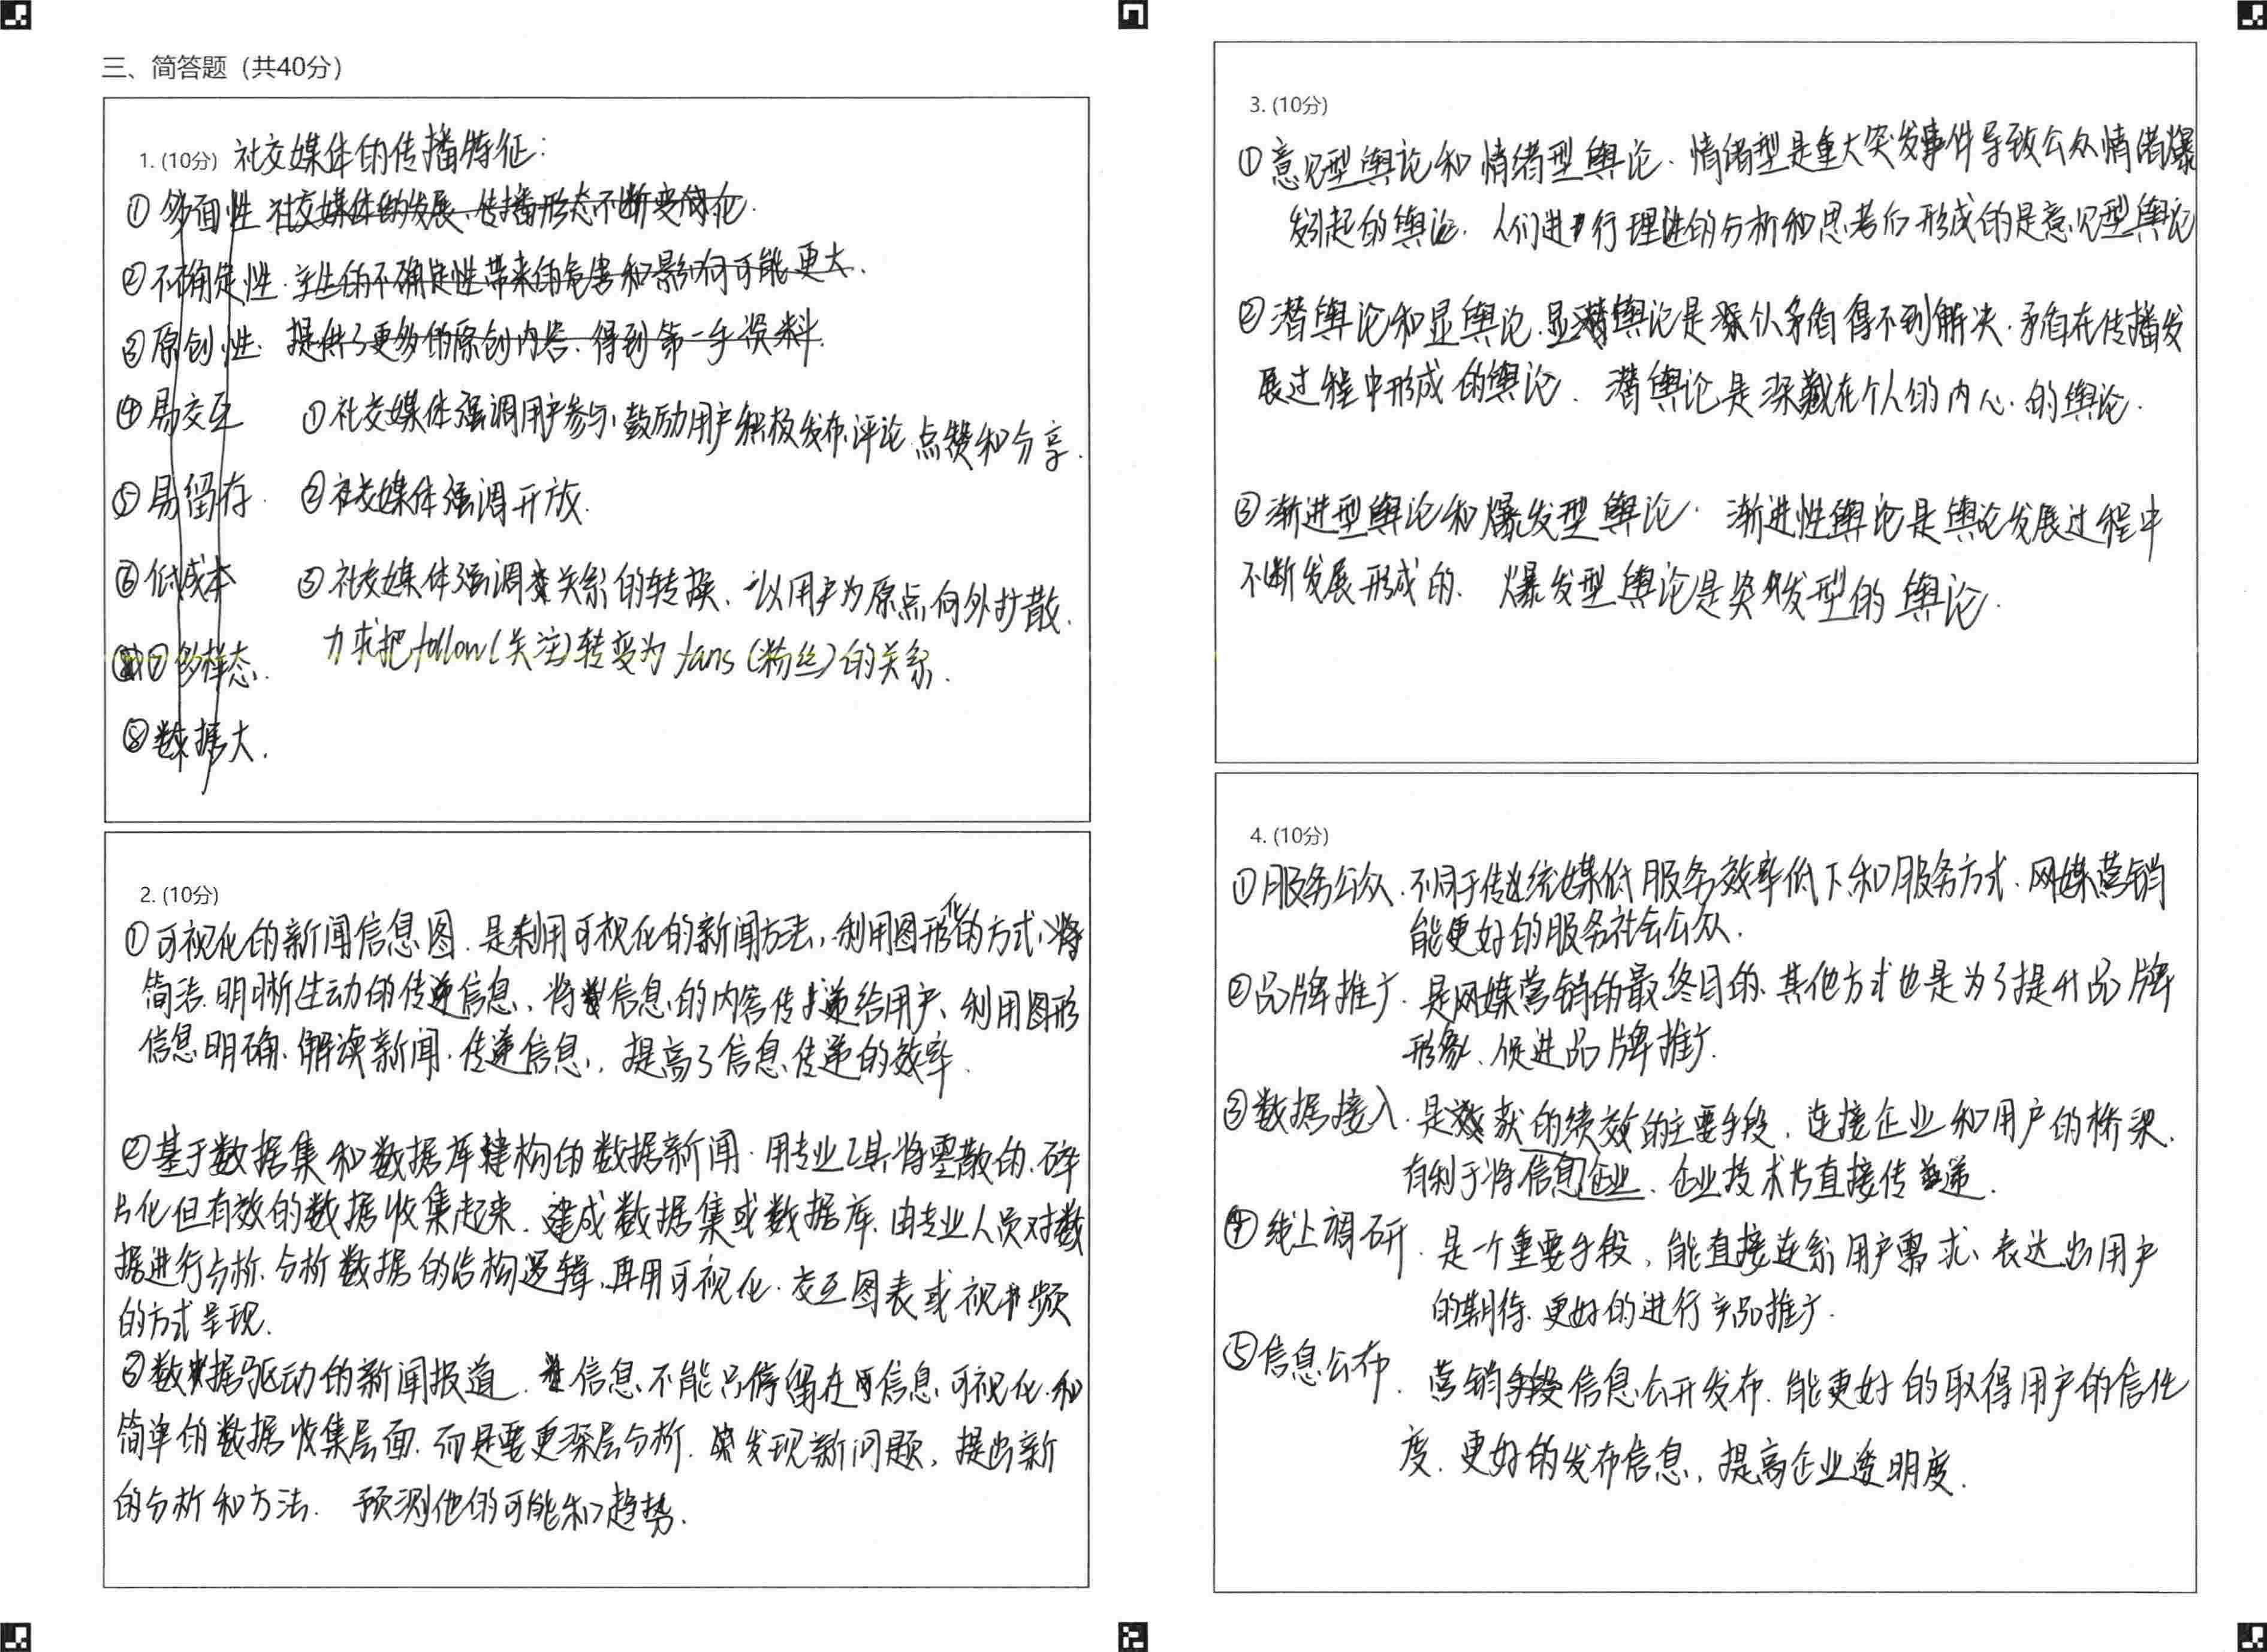 三、简答题（共40分）
1. (10分) 社交媒体的传播特征：
① 多面性 社交媒体的发展、传播形态不断变化.
② 不确定性. 产生的不确定性带来的危害和影响可能更大.
③ 原创性. 提供了更多的原创内容、得到第一手资料.
④ 易交互 ①社交媒体强调用户参与、鼓励用户积极发布、评论、点赞和分享.
⑤ 易留存. ②社交媒体强调开放.
⑥ 低成本 ③社交媒体强调关系的转换、以用户为原点向外扩散.
力求把follow(关注)转变为fans(粉丝)的关系.
⑦多样态.
⑧数据大.
2. (10分)
①可视化的新闻信息图. 是利用可视化的新闻方法, 利用图形化的方式, 将
简洁. 明晰生动的传递信息, 将信息的内容传递给用户、利用图形
信息明确、解读新闻. 传递信息, 提高了信息传递的效率.
②基于数据集和数据库建构的数据新闻. 用专业工具将零散的、碎
片化但有效的数据收集起来. 建成数据集或数据库. 由专业人员对数
据进行分析. 分析数据的结构逻辑, 再用可视化. 交互图表或视频
的方式呈现.
③数据驱动的新闻报道. 信息不能只停留在信息可视化和
简单的数据收集层面. 而是要更深层分析. 发现新问题, 提出新
的分析和方法. 预测他的可能和趋势.
3. (10分)
①意见型舆论和情绪型舆论. 情绪型是重大突发事件导致公众情绪爆
发引起的舆论. 人们进行理性的分析和思考后形成的是意见型舆论
②潜舆论和显舆论. 显舆论是深从矛盾得不到解决. 矛盾在传播发
展过程中形成的舆论. 潜舆论是深藏在个人的内心的舆论.
③渐进型舆论和爆发型舆论. 渐进性舆论是舆论发展过程中
不断发展形成的. 爆发型舆论是突发型的舆论.
4. (10分)
①服务公众. 不同于传统媒体服务效率低下和服务方式. 网媒营销
能更好的服务社会公众.
②品牌推广. 是网媒营销的最终目的. 其他方式也是为了提升品牌
形象、促进品牌推广.
③数据接入. 是获的绩效的主要手段, 连接企业和用户的桥梁.
有利于将信息企业、企业技术片直接传递.
④线上调研. 是一个重要手段, 能直接连系用户需求、表达出用户
的期待. 更好的进行产品推广.
⑤信息公布. 营销手段信息公开发布. 能更好的取得用户的信任
度. 更好的发布信息, 提高企业透明度.